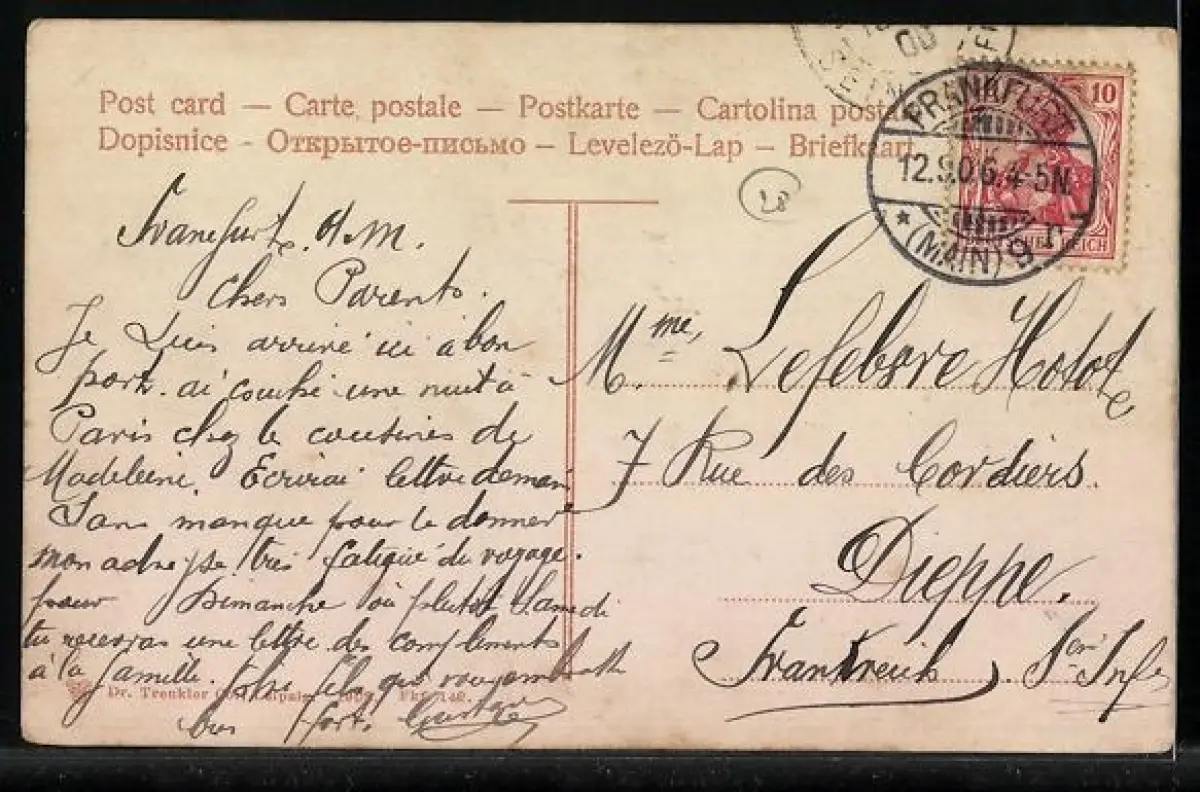 Post card — Carte postale — Postkarte — Cartolina posta
Dopisnice - Открытое-письмо — Levelezö-Lap — Briefkaart
FRANKFURT
12.9.06.4-5N.
* (MAIN) 9 r
10
REICH
28
Francfurt a. M.
Chers Parents.
Je suis arrivé ici à bon
port. ai couché une nuit à
Paris chez le cousines de
Madeleine. Ecrirai lettre demain
Sans manque pour te donner
mon adresse. très fatigué du voyage.
pour Dimanche ou plutot Samedi
tu recevras une lettre de compliments
à la famille. fils qui vous embrasse
bien fort. Gustave
Mme, Lefebvre Hotot
7 Rue des Cordiers.
Dieppe.
Frankreich. Sne Infe
Dr. Trenkler Co. Leipzig Fkf. 142.